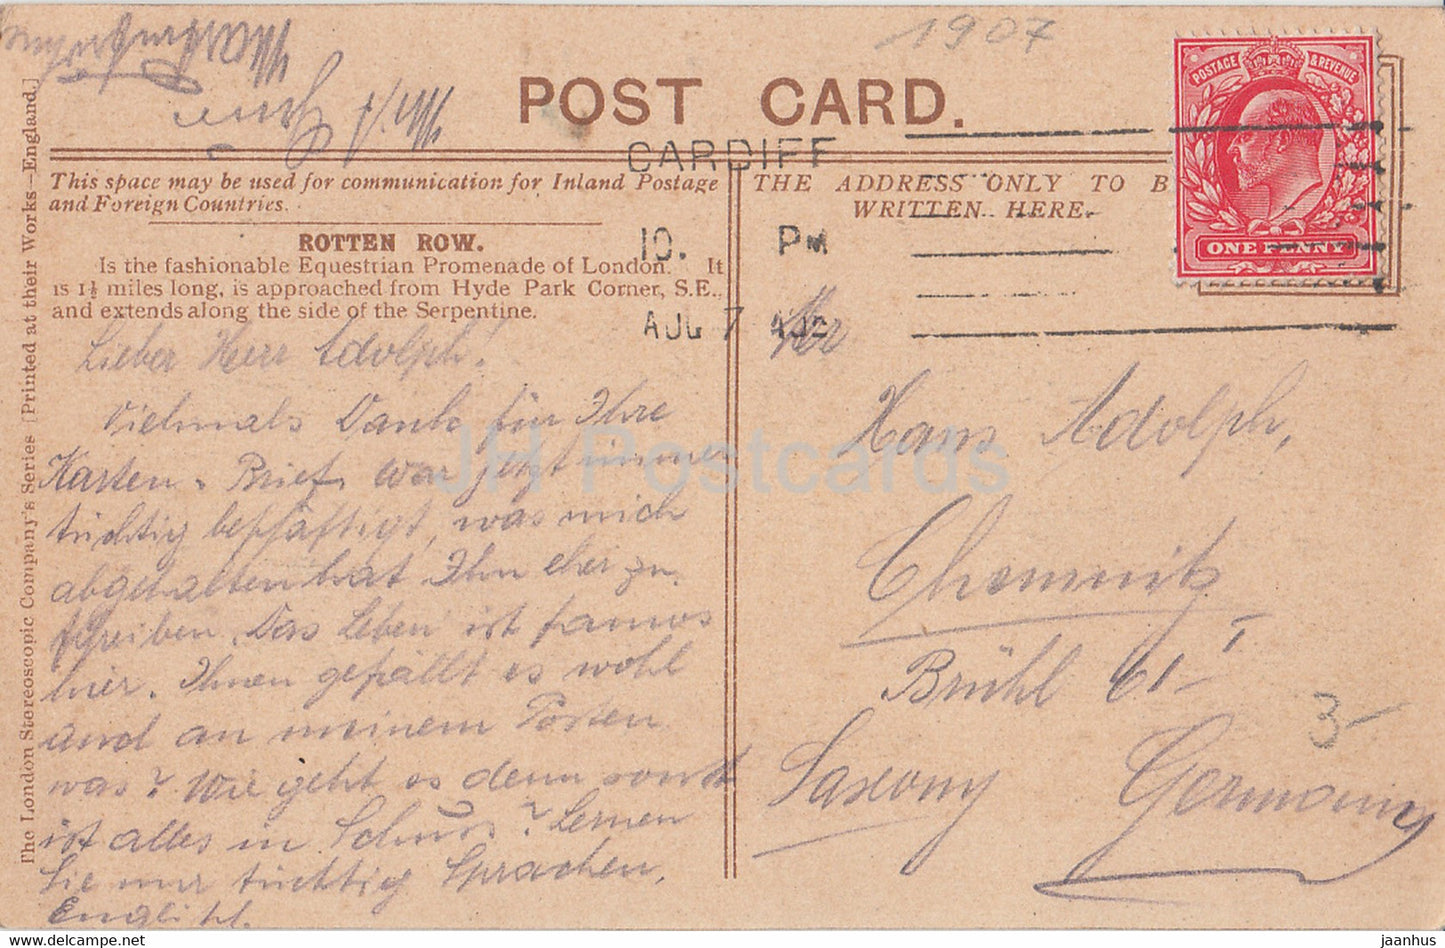 1907
POST CARD.
POSTAGE & REVENUE
ONE PENNY
CARDIFF
10. PM
AUG 7
This space may be used for communication for Inland Postage
and Foreign Countries.
THE ADDRESS ONLY TO B
WRITTEN HERE.
ROTTEN ROW.
Is the fashionable Equestrian Promenade of London. It
is 1½ miles long, is approached from Hyde Park Corner, S.E.,
and extends along the side of the Serpentine.
Lieber Herr Adolph!
Vielmals Dank für Ihre
Karten u. Brief. War jetzt immer
tüchtig beschäftigt, was mich
abgehalten hat Ihn eher zu
schreiben. Das Leben ist famos
hier. Ihnen gefällt es wohl
und an meinem Posten
was? Wie geht es denn sonst
ist alles in Schuss? Lernen
Sie nur tüchtig Sprachen,
Englisch.
Hans Adolph,
Chemnitz I
Brühl 61
Saxony Germany
3-
The London Stereoscopic Company's Series [Printed at their Works—England.]
JH Postcards
www.delcampe.net
jaanhus